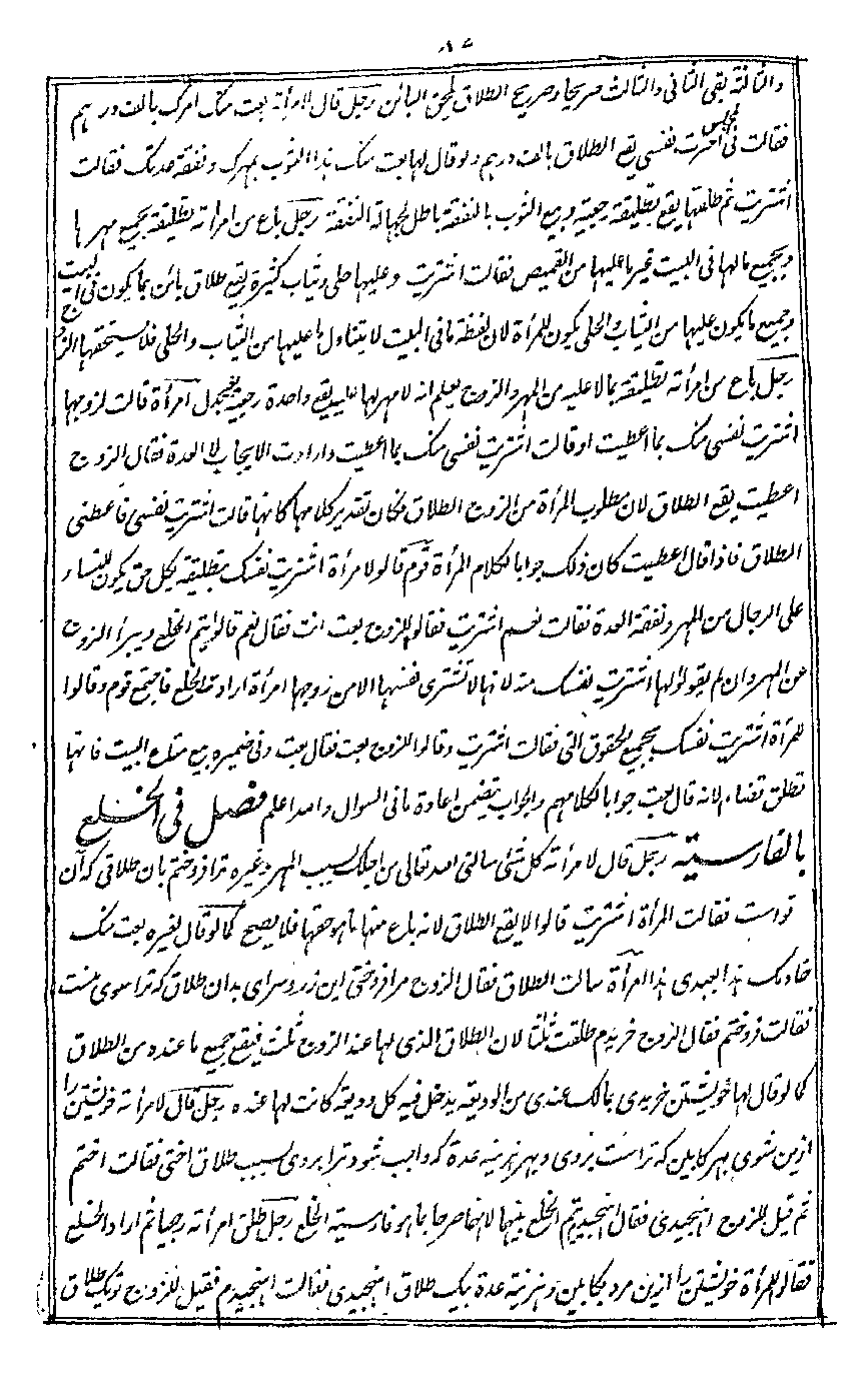 والثالثة بقى الثانى والثالث صريحا وصريح الطلاق يلحق البائن رجل قال لامرأته بعت منك امرك بالف درهم
فقالت فى المجلس اخترت نفسى يقع الطلاق بالف درهم ولو قال لها بعت منك هذا الثوب بمهرك ونفقة عدتك فقالت
اشتريت ثم طلقها يقع تطليقة رجعية وبيع الثوب بالنفقة باطل لجهالة النفقة رجل باع من امرأته تطليقة بجميع مهرها
وبجميع مالها فى البيت غير ما عليها من القميص فقالت اشتريت وعليها حلى وثياب كثيرة يقع طلاق بائن بما يكون فى البيت
وجميع ما يكون عليها من الثياب والحلى يكون للمرأة لان لفظة ما فى البيت لا يتناول ما عليها من الثياب والحلى فلا يستحقها الزوج
رجل باع من امرأته تطليقة بما لا عليه من المهر والزوج يعلم انه لا مهر لها عليه يقع واحدة رجعية امرأة قالت لزوجها
اشتريت نفسى منك بما اعطيت او قالت اشتريت نفسى منك بما اعطيت وارادت الايجاب لا العدة فقال الزوج
اعطيت يقع الطلاق لان مطلوب المرأة من الزوج الطلاق فكان تقدير كلامها كانها قالت اشتريت نفسى فاعطنى
الطلاق فاذا قال اعطيت كان ذلك جوابا لكلام المرأة قوم قالوا لامرأة اشتريت نفسك بتطليقة بكل حق يكون للنساء
على الرجال من المهر ونفقة العدة فقالت نعم اشتريت فقالوا للزوج بعت انت فقال نعم قالوا يتم الخلع ويبرأ الزوج
عن المهر وان لم يقولوا لها اشتريت نفسك منه لانها لا تشترى نفسها الا من زوجها امرأة ارادت الخلع فاجتمع قوم وقالوا
للمرأة اشتريت نفسك بجميع الحقوق التى فقالت اشتريت وقالوا للزوج بعت فقال بعت وفى ضميره بيع متاع البيت فانها
تطلق قضاء لانه قال بعت جوابا لكلامهم والجواب يتضمن اعادة ما فى السوال والله اعلم فصل فى الخلع
بالفارسية رجل قال لامرأته كل شئ سالتى الله تعالى من اجلك بسبب المهر وغيره ترا فروختم بان طلاقى كه آن
تو است فقالت المرأة اشتريت قالوا لا يقع الطلاق لانه باع منها ما هو حقها فلا يصح كما لو قال لغيره بعت منك
خادمك هذا بعبدى هذا امرأة سالت الطلاق فقال الزوج مرا فروختى اين زر وسراى بدان طلاق كه ترا سوى منست
فقالت فروختم فقال الزوج خريدم طلقت ثلثا لان الطلاق الذى لها عند الزوج ثلث فيقع جميع ما عنده من الطلاق
كما لو قال لها خويشتن خريدى بمالك عندى من الوديعة يدخل فيه كل وديعة كانت لها عنده رجل قال لامرأته خويشتن را
ازين شوى بهر كابين كه تراست بروى وبهر هزينه عدة كه واجب شود ترا بروى بسبب طلاق اختى فقالت اختم
ثم قيل للزوج اهنجيدى فقال اهنجيدم يتم الخلع بينهما لانهما صرحا بما هو فارسية الخلع رجل طلق امرأته رجعيا ثم اراد الخلع
فقالوا للمرأة خويشتن را ازين مرد بكابين وهزينه عدة بيك طلاق اهنجيدى فقالت اهنجيدم فقيل للزوج تو يك طلاق